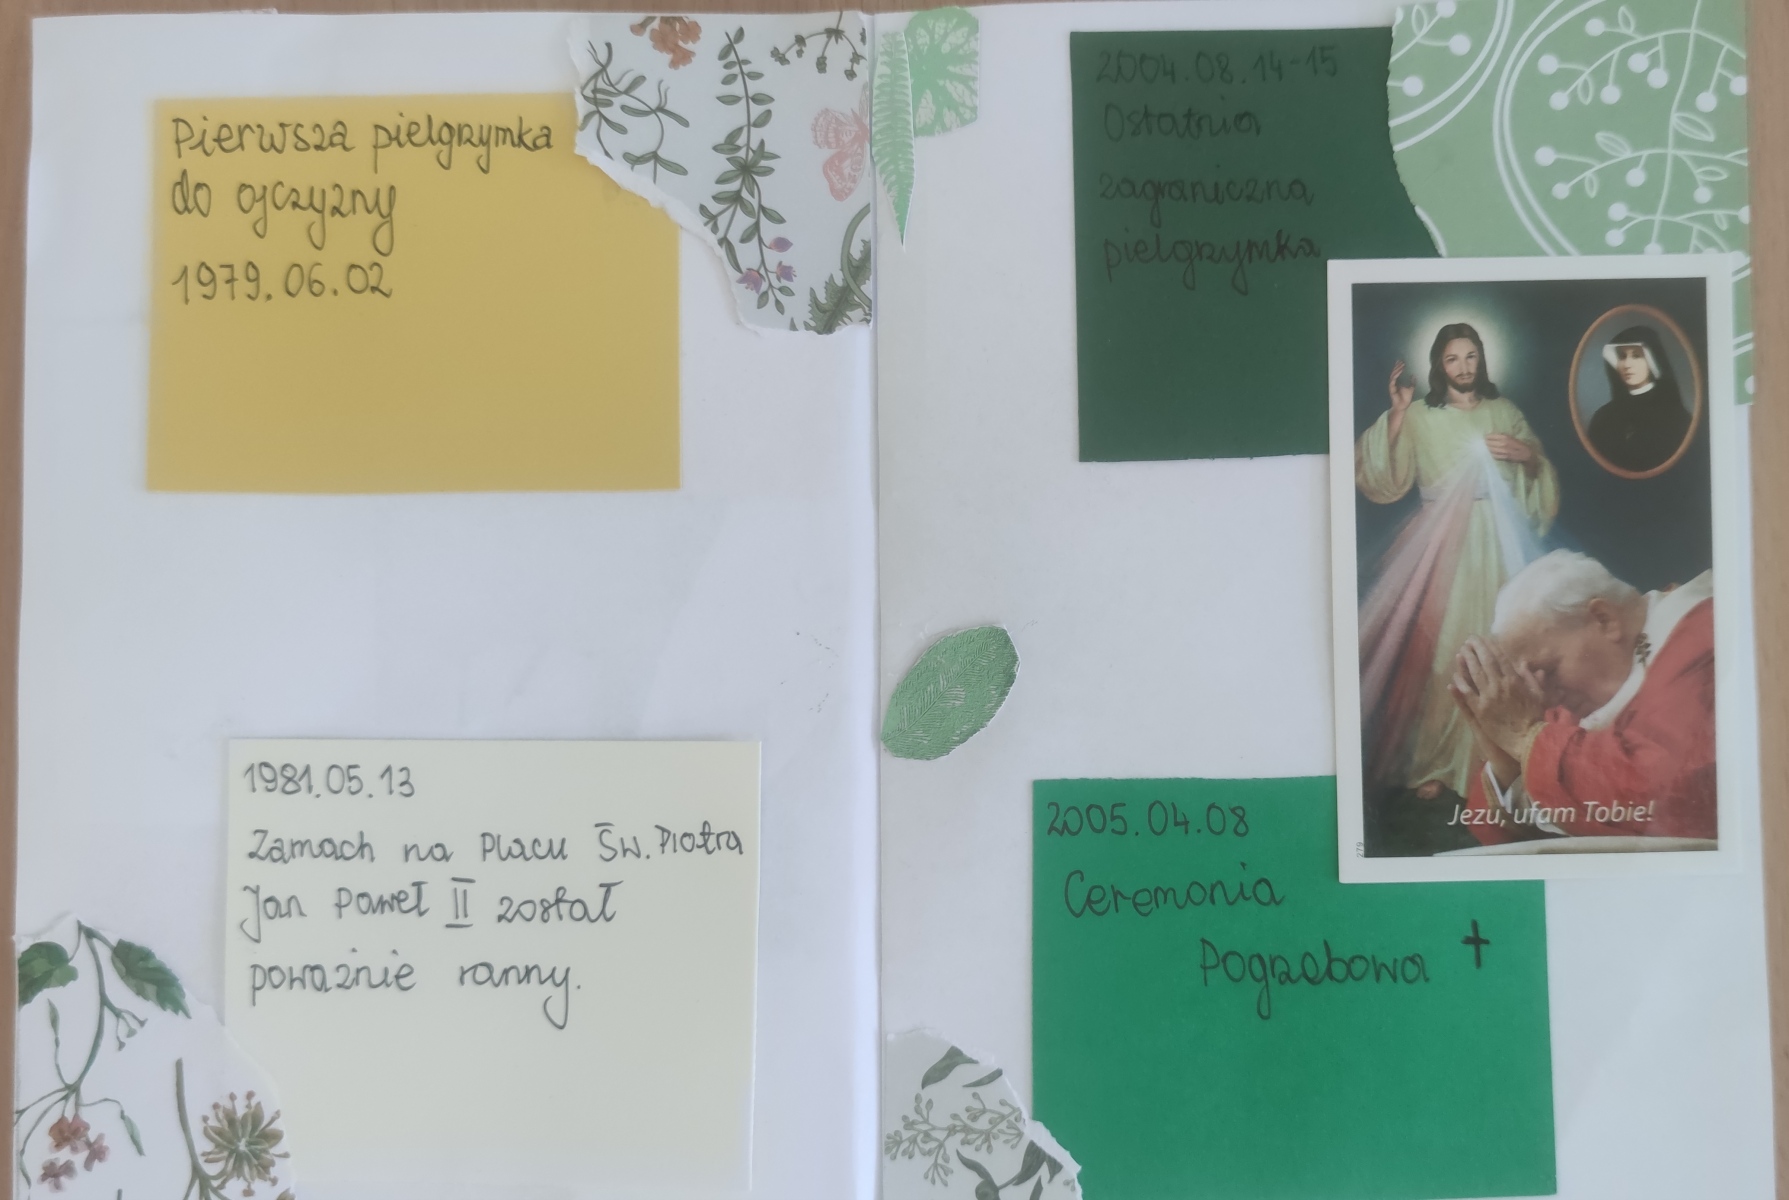 Pierwsza pielgrzymka
do ojczyzny
1979.06.02
1981.05.13
Zamach na Placu Św. Piotra
Jan Paweł II został
poważnie ranny.
2004.08.14-15
Ostatnia
zagraniczna
pielgrzymka
Jezu, ufam Tobie!
279
2005.04.08
Ceremonia
Pogrzebowa